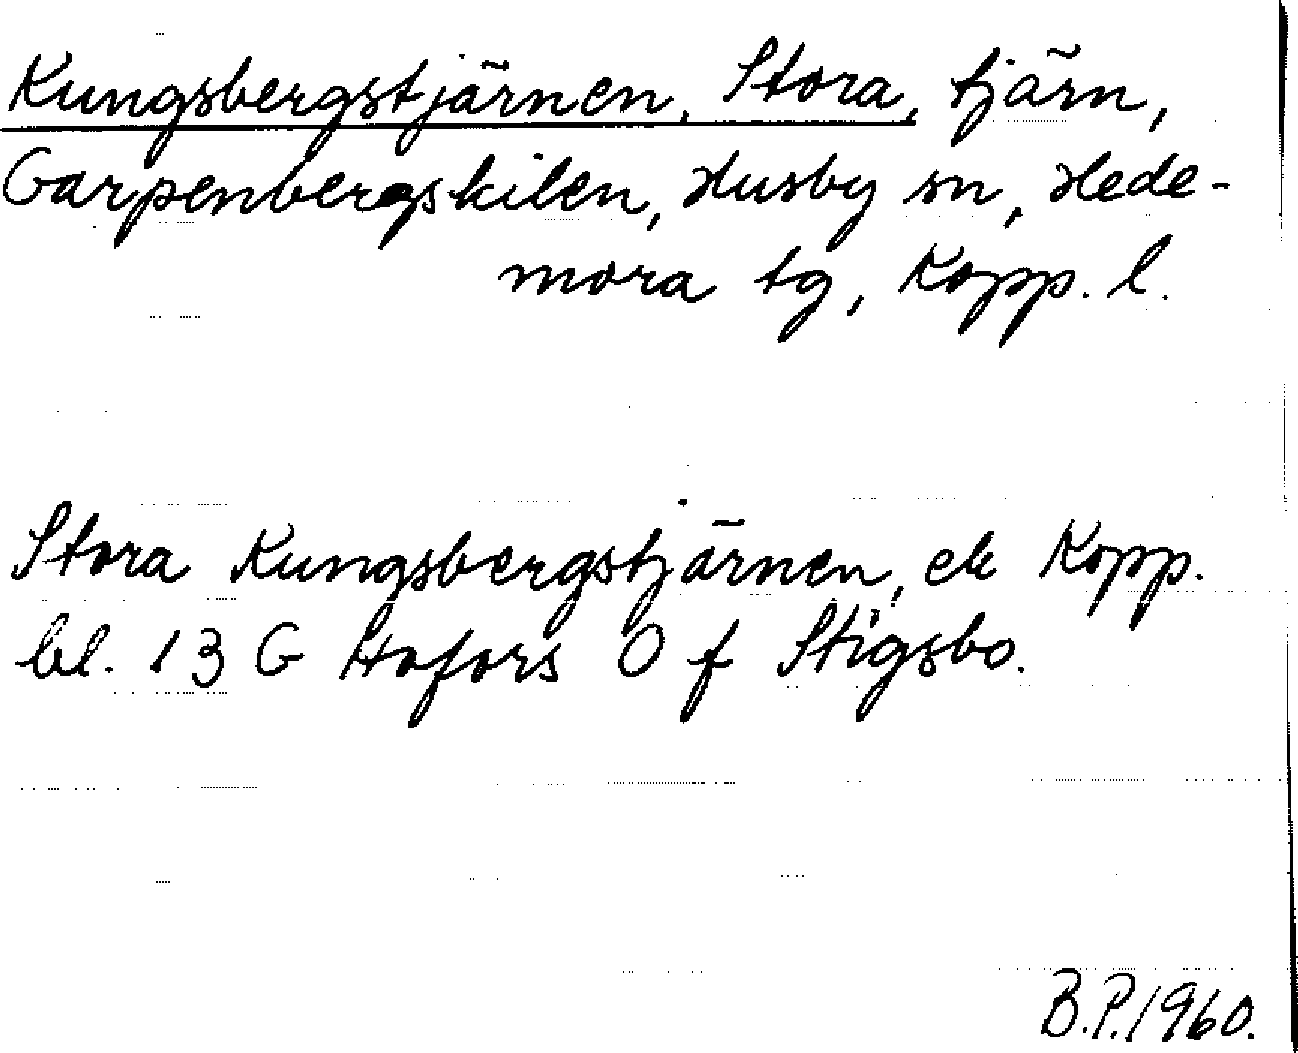 Kungsbergstjärnen, Stora, tjärn,
Garpenbergskilen, Husby sn, Hede-
mora tg, Kopp. l.
Stora Kungsbergstjärnen, ek Kopp.
bl. 13 G Hofors O f Stigsbo.
B.P. 1960.